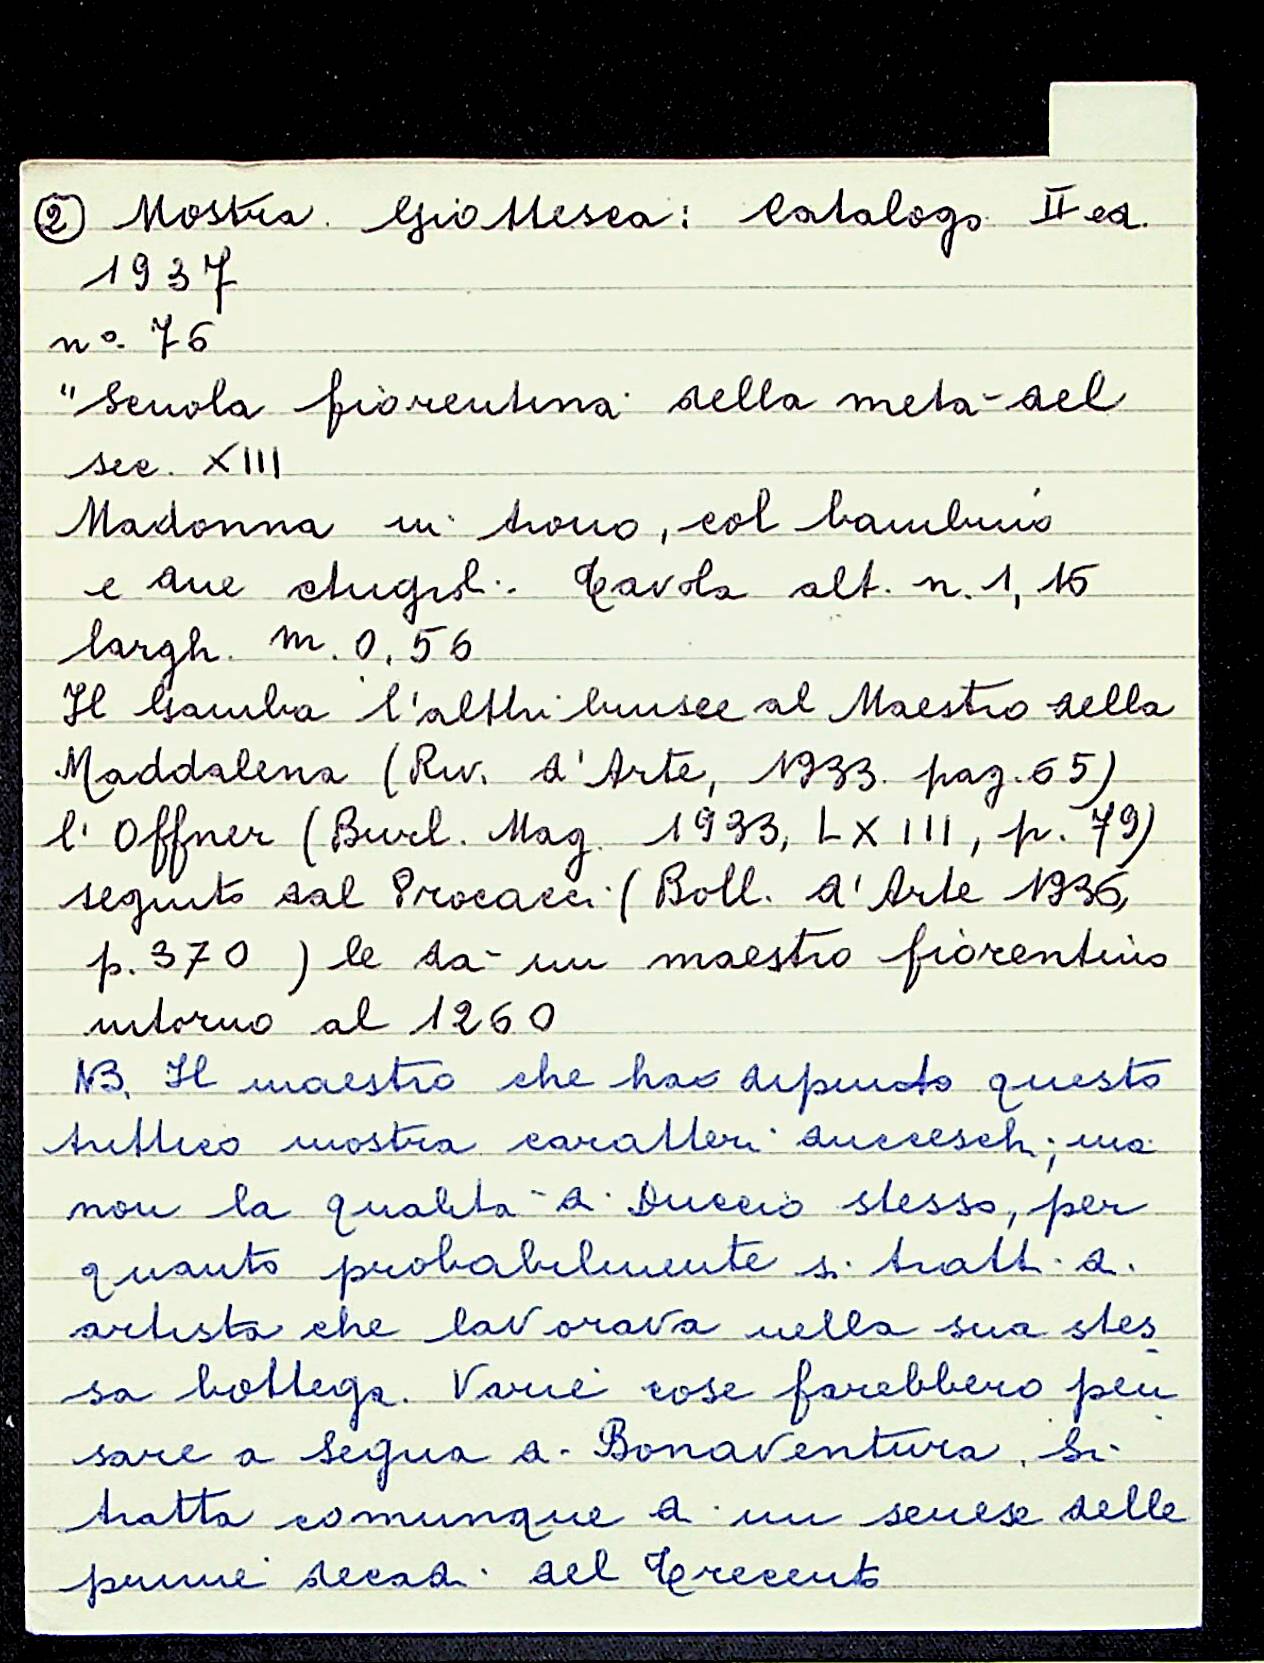 ② Mostra Giottesca: Catalogo II ed.
1937
n°. 76
"Scuola fiorentina della metà del
sec. XIII
Madonna in trono, col bambino
e due Angeli. Tavola alt. m. 1,15
largh. m. 0,56
Il Gamba l'attribuisce al Maestro della
Maddalena (Riv. d'Arte, 1933. pag. 65)
l'Offner (Burl. Mag. 1933, LXIII, p. 79)
seguito dal Procacci (Boll. d'Arte 1936,
p. 370) le dà un maestro fiorentino
intorno al 1260
NB. Il maestro che ha dipinto questo
trittico mostra caratteri ducceschi, ma
non la qualità di Duccio stesso, per
quanto probabilmente si tratti di
artista che lavorava nella sua stes
sa bottega. Varie cose farebbero pen
sare a Segna di Bonaventura. Si
tratta comunque di un senese delle
prime decadi del Trecento